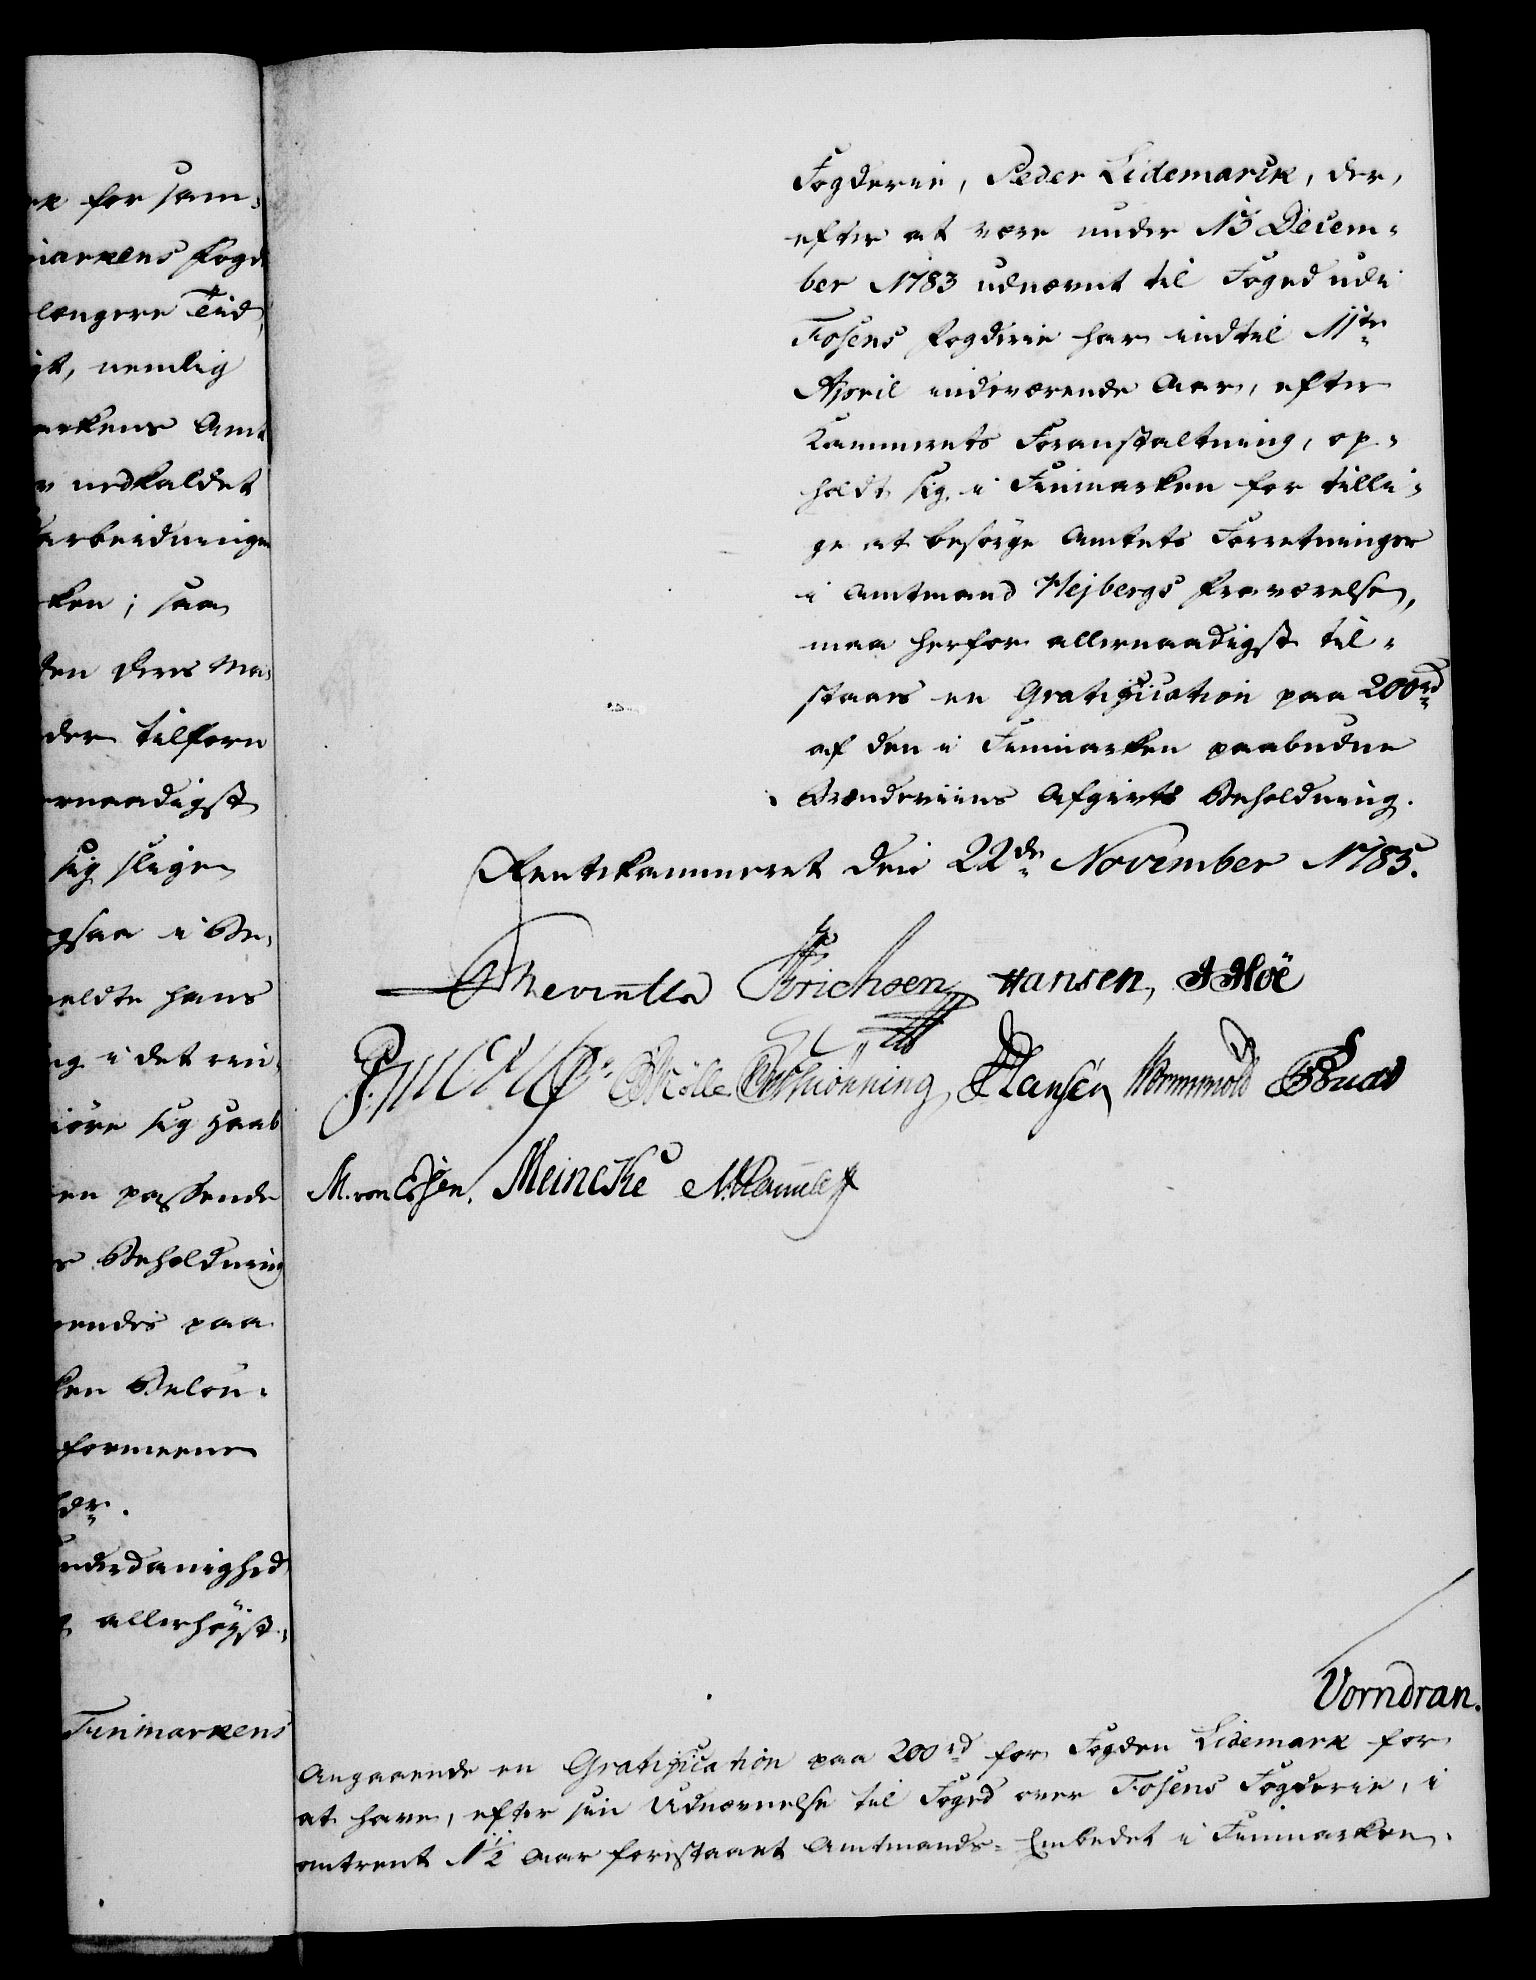 rk for sam-
markens Fogd
længere Tid,
gt, nemlig
arkens Amt
nedkaldet
arbeidningen
ken; saa
den deres Ma-
der tilforn
ernaadigst
sig slige
ogsaa i Be-
meldte hans
ng i det min-
giøre sig Haab
en passende
Beholdning
endes paa
ken Beløn-
formeene
ldr.
underdanighed
allerhøyst-
Finmarkens
Fogderie, Peder Lidemarck, der,
efter at være under 13 Decem-
ber 1783 udnævnt til Foged udi
Fosens Fogderie har indtil 11te
April indeværende Aar, efter
Kammerets Foranstaltning, op-
holdt sig i Finmarken for tilli-
ge at besørge Amtets Forretninger
i Amtmand Hejbergs Fraværelse,
maa herfor allernaadigst til-
staaes en Gratification paa 200rd
af den i Finmarken paabudne
Brænderiins Afgivts Beholdning.
Rentekammeret den 22de November 1785.
Erichsen Hansen, Hoë
Mølle Schiønning Hansen Wormskiold
M. von Essen. Meincke
Vorndran.
Angaaende en Gratification paa 200rd for Fogden Lidemark for
at have, efter sin Udnævnelse til Foged over Fosens Fogderie, i
omtrent 1½ Aar forestaaet Amtmands-Embedet i Finmarken.